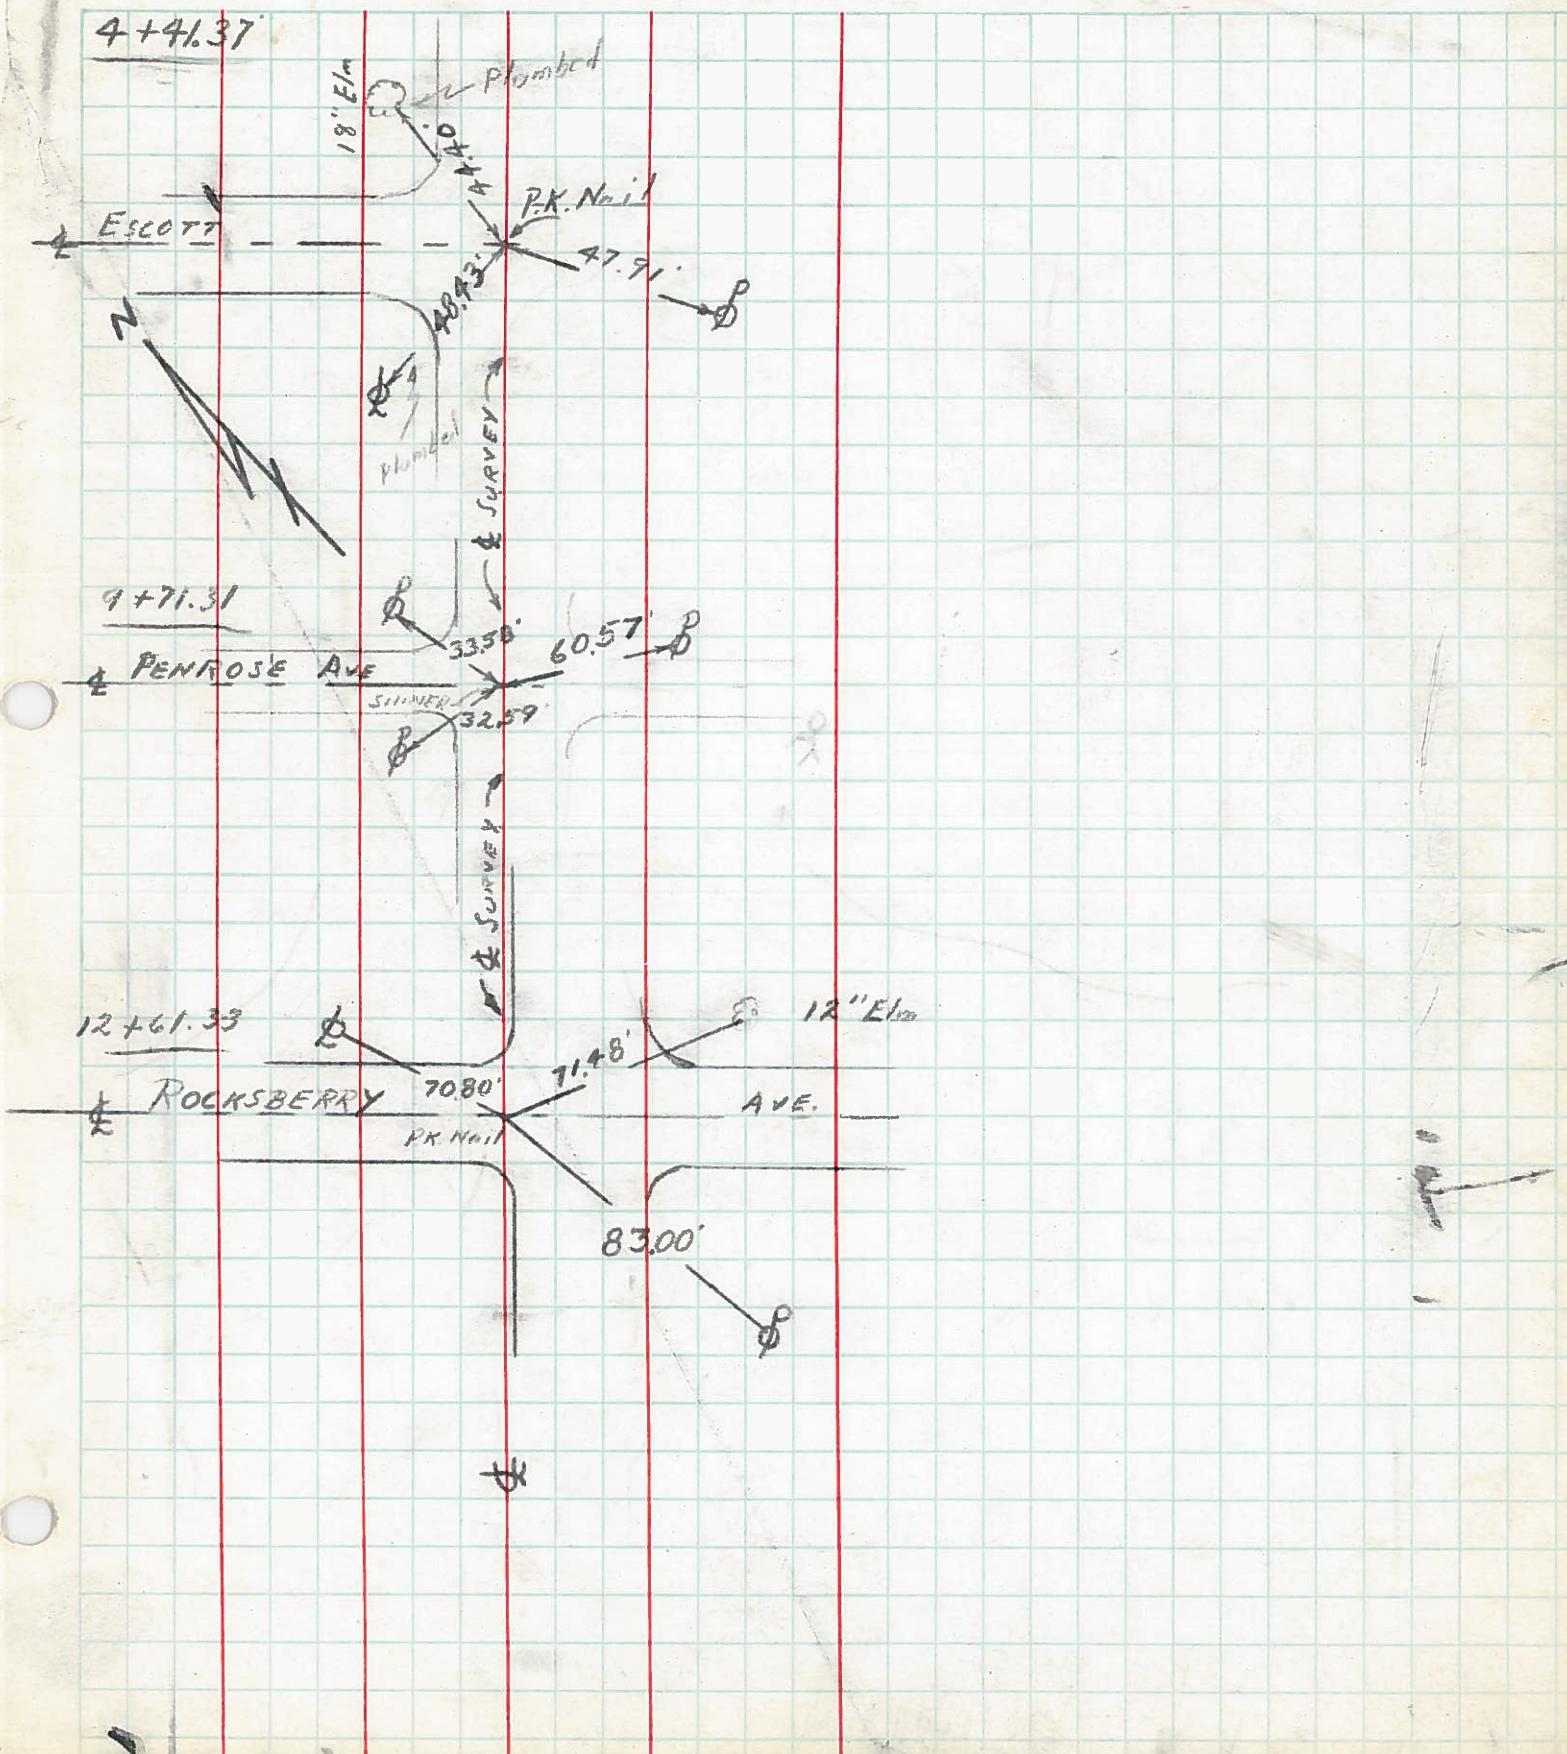 4+41.37
18" Elm
Plumbed
44.40'
P.K. Nail
℄ ESCOTT
47.91'
48.43'
N
plumbed
℄ SURVEY
9+71.31
33.58'
60.57'
℄ PENROSE AVE
SHINER
32.59'
℄ SURVEY
12+61.33
12" Elm
71.48'
70.80'
℄ ROCKSBERRY AVE.
P.K. Nail
83.00'
℄